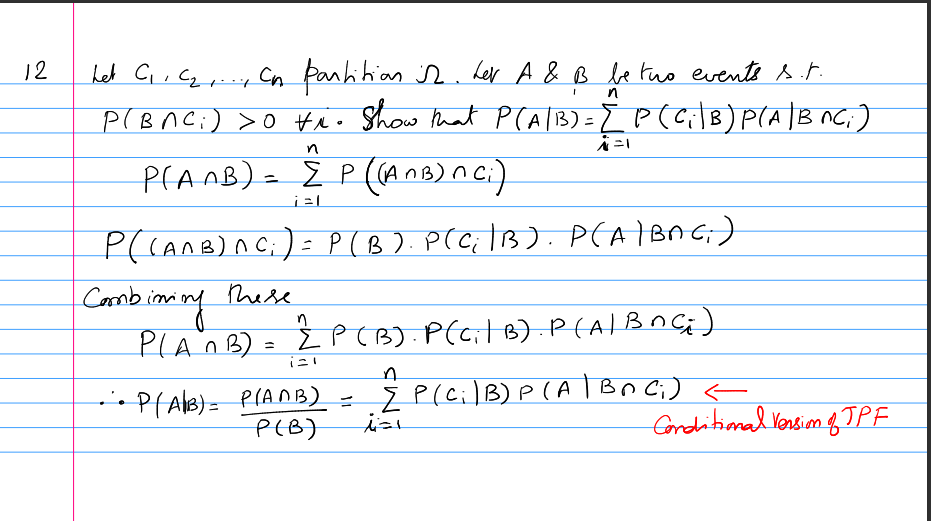 12 Let C₁, C₂, ..., Cn partition Ω. Let A & B be two events s.t.
P(B∩Cᵢ) > 0 ∀i. Show that P(A|B) = ∑ⁿᵢ₌₁ P(Cᵢ|B) P(A|B∩Cᵢ)
P(A∩B) = ∑ⁿᵢ₌₁ P((A∩B)∩Cᵢ)
P((A∩B)∩Cᵢ) = P(B). P(Cᵢ|B). P(A|B∩Cᵢ)
Combining these
P(A∩B) = ∑ⁿᵢ₌₁ P(B). P(Cᵢ|B). P(A|B∩Cᵢ)
∴ P(A|B) = P(A∩B)/P(B) = ∑ⁿᵢ₌₁ P(Cᵢ|B) P(A|B∩Cᵢ) ←
Conditional Version of TPF